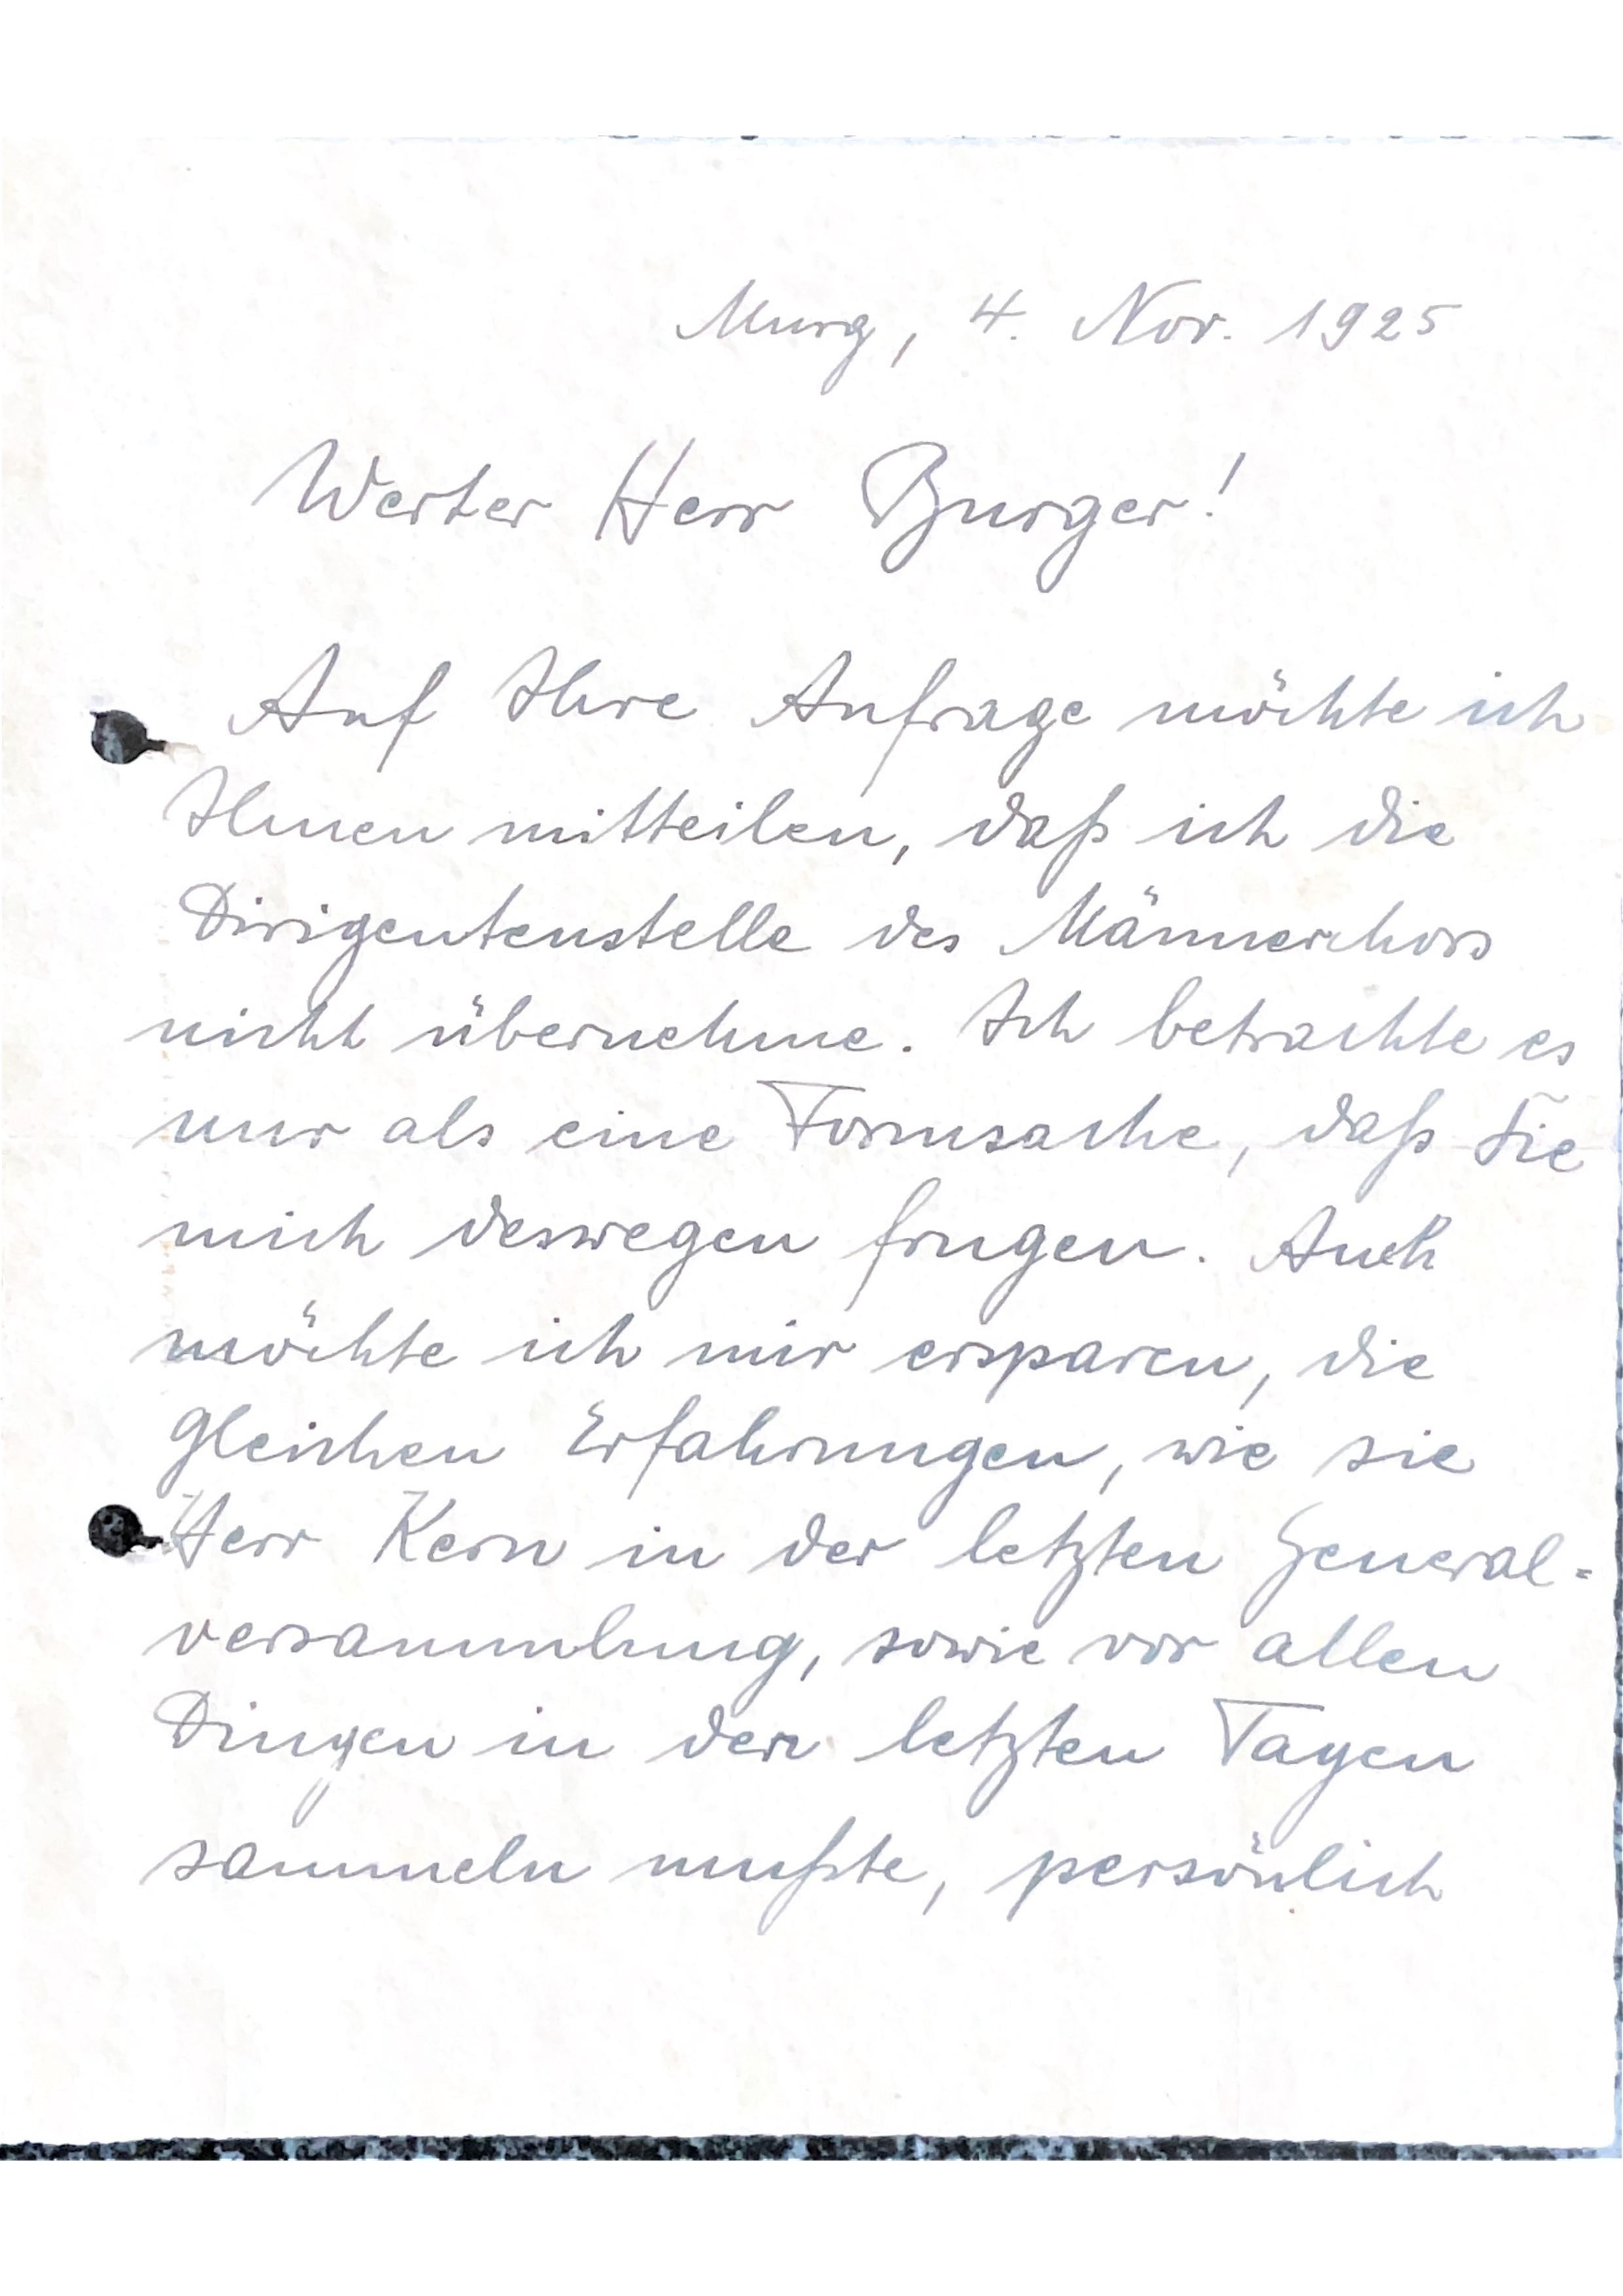 Murg, 4. Nov. 1925
Werter Herr Burger!
Auf Ihre Anfrage möchte ich
Ihnen mitteilen, daß ich die
Dirigentenstelle des Männerchors
nicht übernehme. Ich betrachte es
nur als eine Formsache, daß Sie
mich deswegen frugen. Auch
möchte ich mir ersparen, die
gleichen Erfahrungen, wie sie
Herr Kern in der letzten General=
versammlung, sowie vor allen
Dingen in den letzten Tagen
sammeln mußte, persönlich